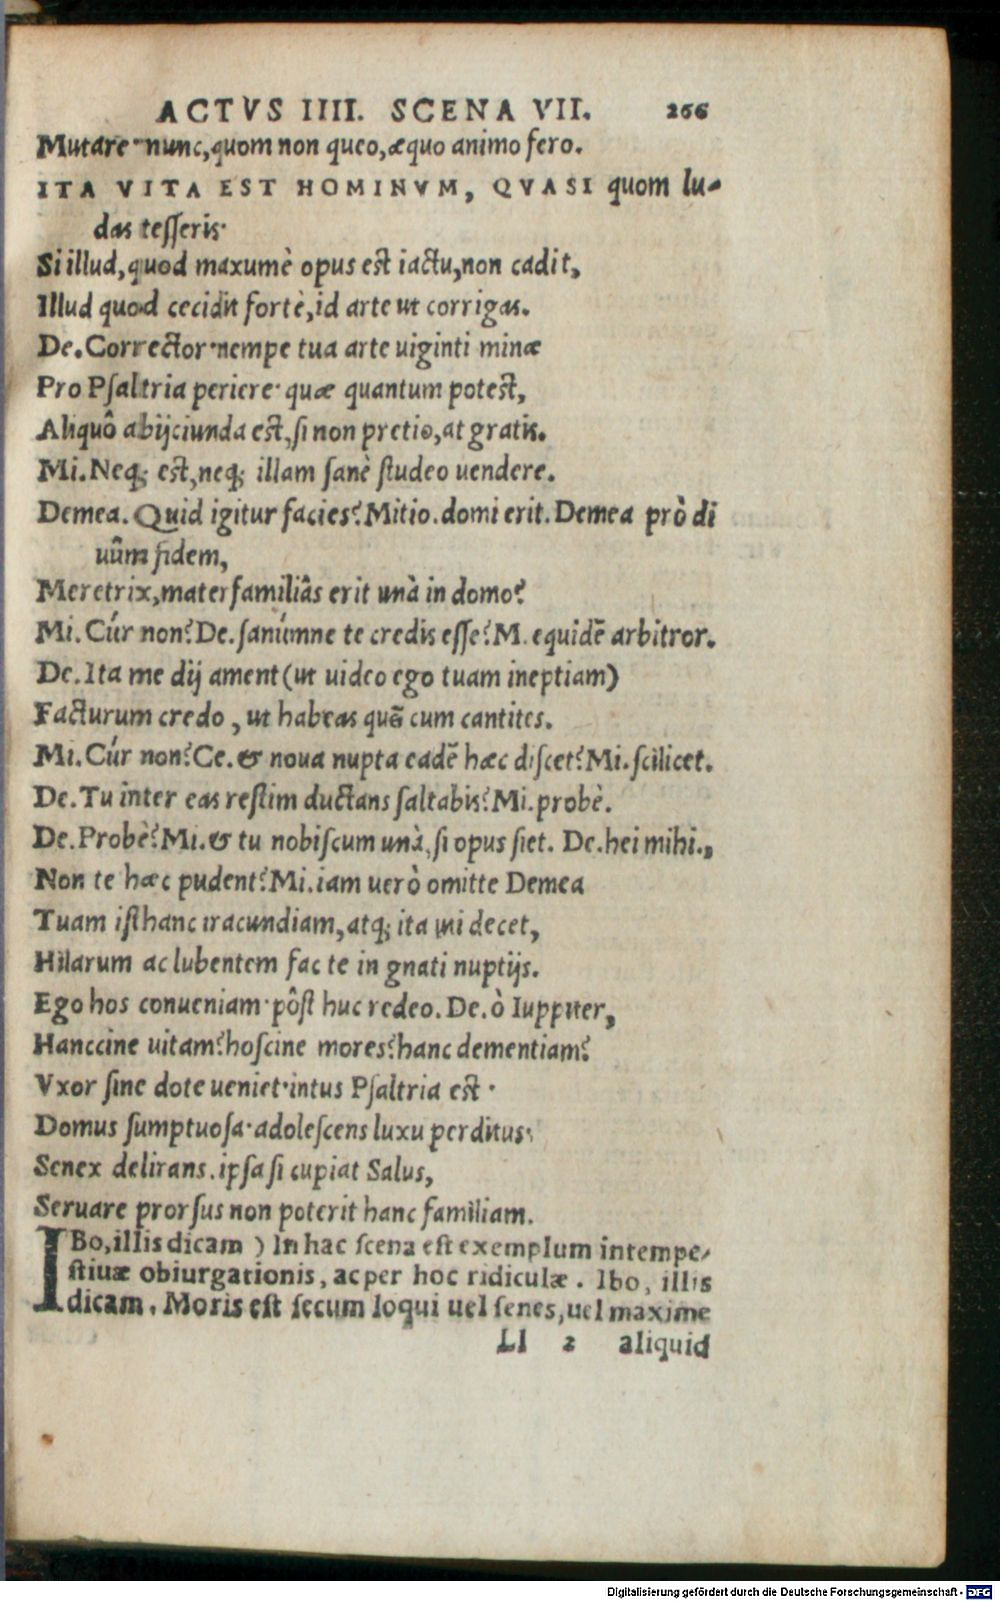 ACTVS IIII. SCENA VII. 266
Mutare· nunc, quom non queo, æquo animo fero.
ITA VITA EST HOMINVM, QVASI quom lu-
das tesseris·
Si illud, quod maxumè opus est iactu, non cadit,
Illud quod cecidit fortè, id arte ut corrigas.
De. Corrector· nempe tua arte uiginti minæ
Pro Psaltria periere· quæ quantum potest,
Aliquô abijciunda est, si non pretio, at gratis.
Mi. Neq; est, neq; illam sanè studeo uendere.
Demea. Quid igitur facies? Mitio. domi erit. Demea prò di
uûm fidem,
Meretrix, materfamiliâs erit unà in domo?
Mi. Cúr non? De. sanúmne te credis esse? M. equidẽ arbitror.
De. Ita me dij ament (ut uideo ego tuam ineptiam)
Facturum credo, ut habeas quẽ cum cantites.
Mi. Cúr non? Ce. & noua nupta eadẽ hæc discet? Mi. scilicet.
De. Tu inter eas restim ductans saltabis? Mi. probè.
De. Probè? Mi. & tu nobiscum unà, si opus siet. De. hei mihi.,
Non te hæc pudent? Mi. iam uerò omitte Demea
Tuam isthanc iracundiam, atq; ita uni decet,
Hilarum ac lubentem fac te in gnati nuptijs.
Ego hos conueniam· pôst huc redeo. De. ò Iuppiter,
Hanccine uitam? hoscine mores? hanc dementiam?
Vxor sine dote ueniet· intus Psaltria est·
Domus sumptuosa· adolescens luxu perditus·
Senex delirans. ipsa si cupiat Salus,
Seruare prorsus non poterit hanc familiam.
IBo, illis dicam ) In hac scena est exemplum intempe-
stiuæ obiurgationis, ac per hoc ridiculæ. Ibo, illis
dicam. Moris est secum loqui uel senes, uel maxime
Ll 2 aliquid
Digitalisierung gefördert durch die Deutsche Forschungsgemeinschaft - DFG